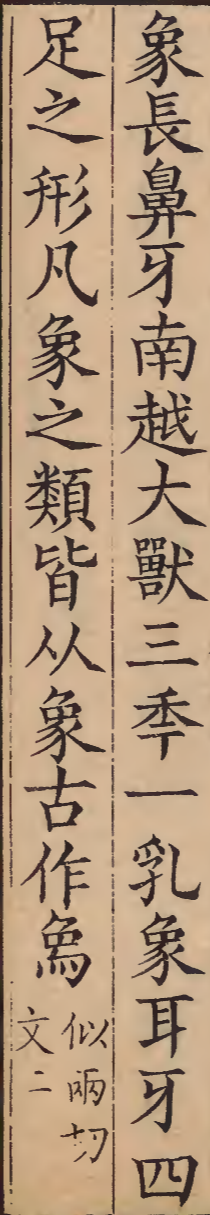 象長鼻牙南越大獸三秊一乳象耳牙四
足之形凡象之類皆从象古作𤉢
似兩切
文二